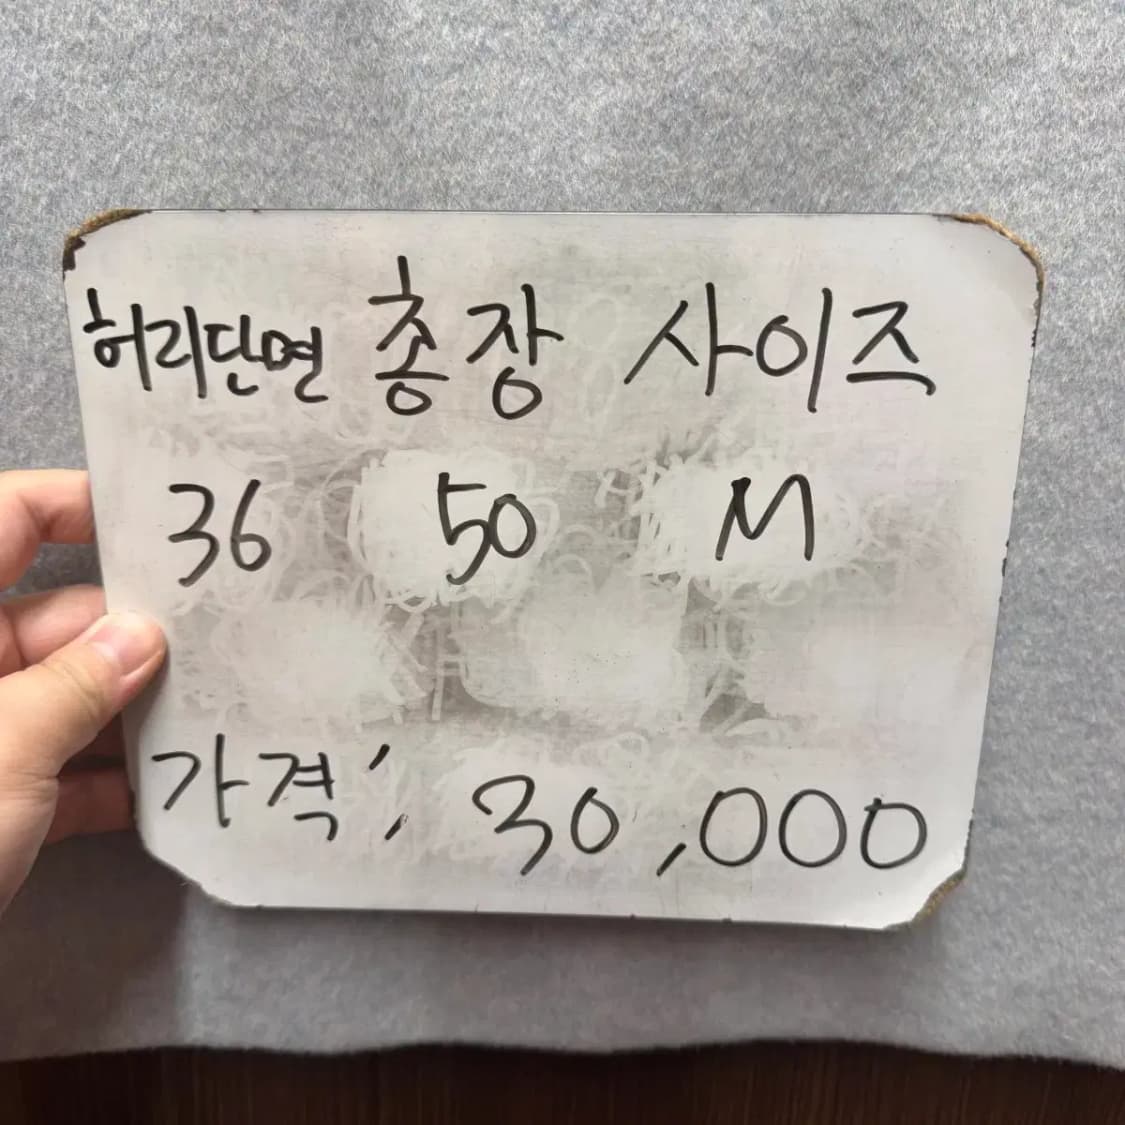 허리단면 총장 사이즈
36 50 M
가격; 30,000